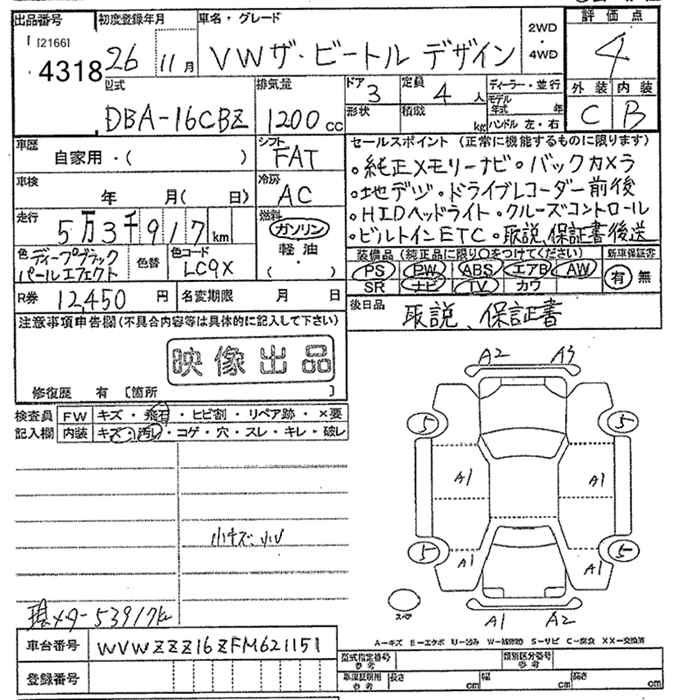 出品番号 初度登録年月 車名・グレード 2WD・4WD 評価点
[21661]
4318 26年11月 VWザ・ビートル デザイン 4
型式 排気量 ドア 3 定員 4人 ディーラー・並行 外装 内装
DBA-16CBZ 1200cc 形状 積載 kg モデル年式 年 ハンドル 左・右 C B
車歴 シフト セールスポイント (正常に機能するものに限ります)
自家用・( ) FAT ・純正メモリーナビ・バックカメラ
車検 冷房 ・地デジ・ドライブレコーダー前後
年 月( 日) AC ・HIDヘッドライト・クルーズコントロール
走行 燃料 ・ビルトインETC・取説、保証書後送
5万3千917km ガソリン・軽油・( )
色 ディープブラックパールエフェクト 色替 色コード LC9X
装備品 (純正品に限り○をつけてください) 新車保証書
PS PW ABS エアB AW 有 無
SR ナビ TV カワ
R券 12,450円 名変期限 月 日 後日品 取説、保証書
注意事項申告欄(不具合内容等は具体的に記入して下さい)
映像出品
修復歴 有 [箇所 ]
検査員 FW キズ・飛石・ヒビ割・リペア跡・×要
記入欄 内装 キズ・汚レ・コゲ・穴・スレ・キレ・破レ
A2 A3
5 5
A1 A1
小キズ、小U
5 5
A1 A1
スペア
A1 A2
現メーター53917k
A-キズ E-エクボ U-凹み W-補修跡 S-サビ C-腐食 XX-交換済
車台番号 WVWZZZ16ZFM621151 型式指定番号 参考 類別区分番号 参考
登録番号 車庫証明用 参考 長さ cm 幅 cm 高さ cm